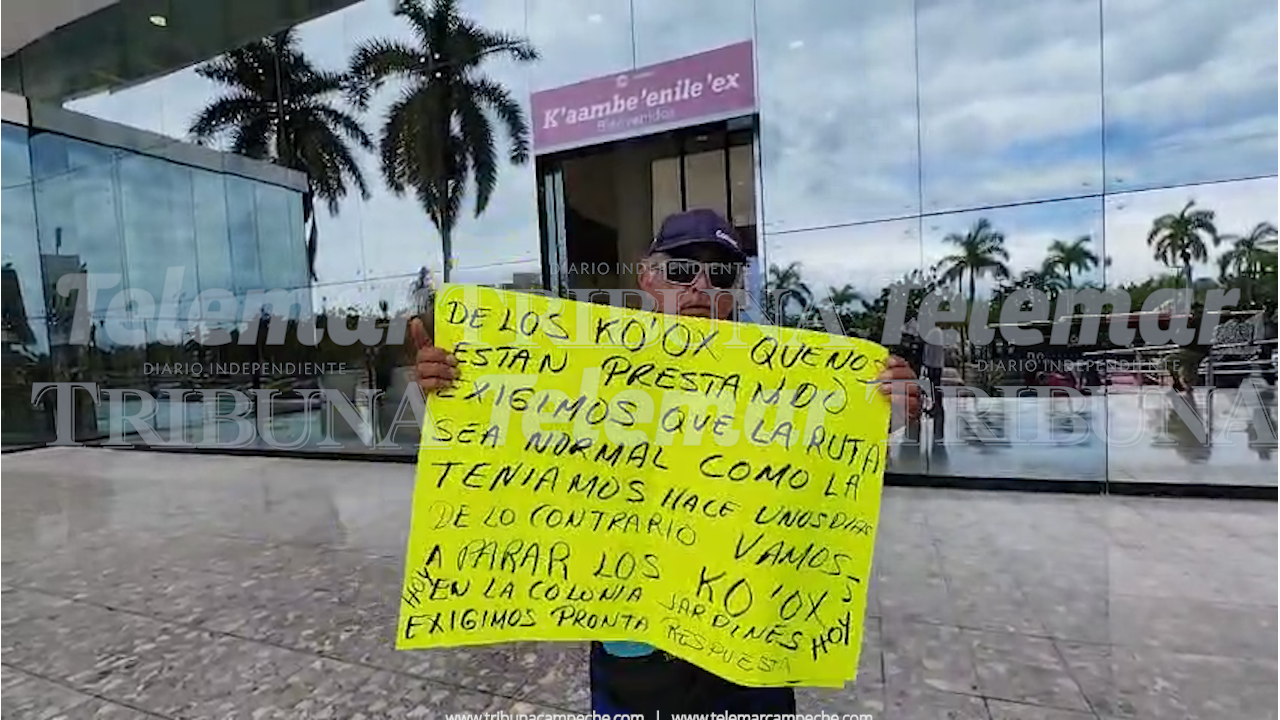 K'aambe'enile'ex
Bienvenidos
DE LOS KO'OX QUE NOS
ESTAN PRESTANDO
EXIGIMOS QUE LA RUTA
SEA NORMAL COMO LA
TENIAMOS HACE UNOS DIAS
DE LO CONTRARIO VAMOS
A PARAR LOS KO'OX
HOY EN LA COLONIA JARDINES HOY
EXIGIMOS PRONTA RESPUESTA
Telemar
DIARIO INDEPENDIENTE
TRIBUNA
DIARIO INDEPENDIENTE
TRIBUNA
Telemar
Telemar
DIARIO INDEPENDIENTE
TRIBUNA
www.tribunacampeche.com | www.telemarcampeche.com